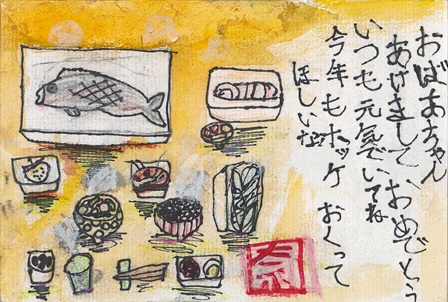 おばあちゃん
あけましておめでとう
いつも元気でいてね
今年もホッケおくって
ほしいな
奈